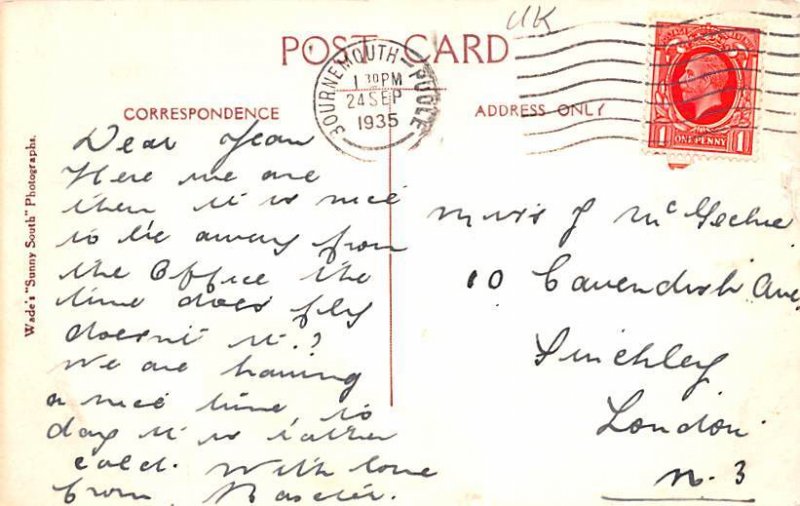 UK
POST CARD
BOURNEMOUTH - POOLE
1 30 PM
24 SEP
1935
ONE PENNY
1 1
CORRESPONDENCE
ADDRESS ONLY
Wade's "Sunny South" Photographs.
Dear Jean
Here we are
then it is nice
to be away from
the Office the
time does fly
doesn't it?
We are having
a nice time, to
day it is rather
cold. With love
from
Miss J McGechie
10 Cavendish Ave,
Finchley
London
N. 3